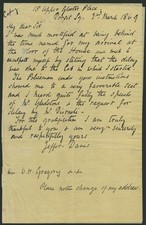 18 Upper Gloster Place
Dorset Sq. 2nd March 1869
My dear Sir
I was much mortified at being behind
the time named for my arrival at
the door of the House and made a
mortified
by stating that the delay
was due to the Cab in which I started.
The Policeman under your instructions
showed me to a very favorable seat
and I heard quite fully the speech
of Mr Gladstone & the request for
delay by Mr Disraeli.
For the gratification I am truly
thankful to you & am very sincerely
and respectfully yours
Jeffer. Davis
W. H. Gregory
Please notice change of my address